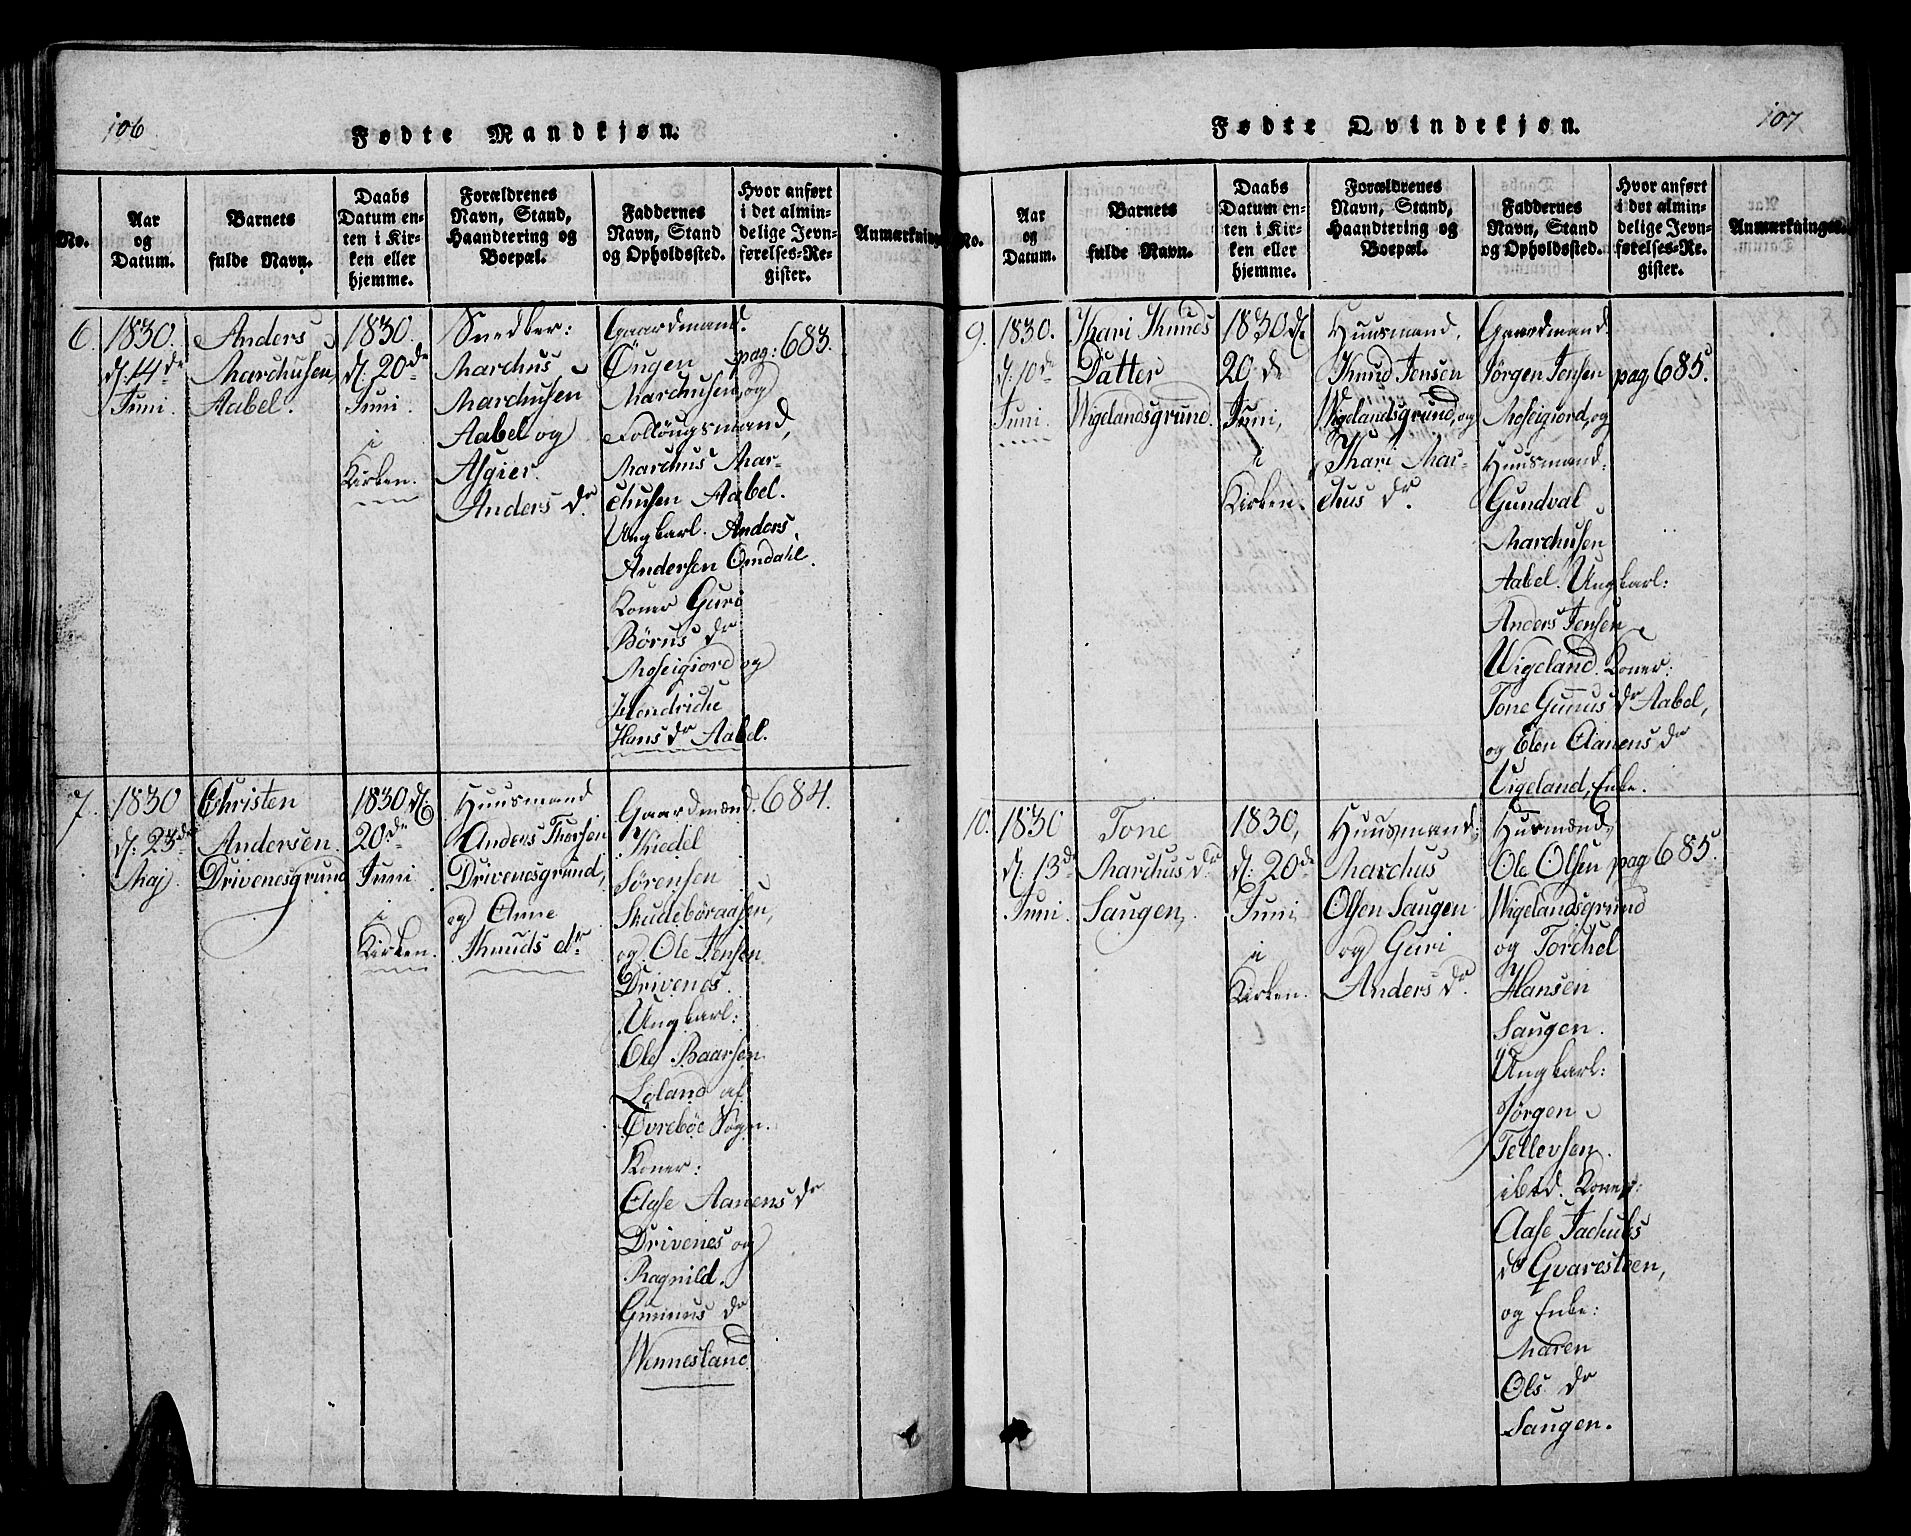 106
Fødte Mandkjøn.
No.
Aar
og
Datum.
Barnets
fulde Navn.
Daabs
Datum en-
ten i Kir-
ken eller
hjemme.
Forældrenes
Navn, Stand,
Haandtering og
Boepæl.
Faddernes
Navn, Stand
og Opholdssted.
Hvor anført
i det almin-
delige Jevn-
førelses-Re-
gister.
Anmærkning
6.
1830.
d: 14de
Juni.
Anders
Marchusen
Aabel.
1830.
d: 20de
Juni.
i
Kirken.
Snedker:
Marchus
Marchusen
Aabel og
Asgier
Anders dr
Gaardmænd.
Öugen
Marchusen, og
Follöugsmand,
Marchus Mar-
chusen Aabel.
Ungkarl. Anders
Andersen Omdahl.
Koner Guri
Börus dr
Moseigiord og
Hendriche
Hans dr Aabel.
pag: 683.
7.
1830
d: 23de
Maj.
Christen
Andersen
Drivenesgrund
1830 d:
20de
Juni
i
Kirken.
Huusmand
Anders Thorsen
Drivenesgrund,
og Anne
Knuds dr
Gaardmænd.
Kiedel
Sörensen
Skudeböraasen,
og Ole Jensen
Drivenes.
Ungkarl:
Ole Baarsen
Loland af
Övreböe Sogn.
Koner:
Aase Aanens dr
Drivenes og
Ragnild
Gunnus dr
Wennesland
684.
107
Fødte Qvindekjøn.
No.
Aar
og
Datum.
Barnets
fulde Navn.
Daabs
Datum en-
ten i Kir-
ken eller
hjemme.
Forældrenes
Navn, Stand,
Haandtering og
Boepæl.
Faddernes
Navn, Stand
og Opholdssted.
Hvor anført
i det almin-
delige Jevn-
førelses-Re-
gister.
Anmærkninger
9.
1830.
d: 10de
Juni.
Thari Knuds
Datter
Wigelandsgrund.
1830 d:
20 de
Juni,
i
Kirken.
Huusmand.
Knud Jensen
Wigelandsgrund, og
Thari Mar-
chus dr.
Gaardmand.
Jørgen Jensen
Moseigiord, og
Huusmand:
Gundval
Marchusen
Aabel. Ungkarl:
Anders Jensen
Wigeland. Koner:
Tone Gunus dr Aabel,
og Elen Aanens dr
Vigeland, Enke.
pag 685.
10.
1830
d: 13de
Juni.
Tone
Marchus dr
Saugen,
1830,
d: 20de
Juni,
i
Kirken.
Huusmand:
Marchus
Olsen Saugen
og Guri
Anders dr.
Husmænd,
Ole Olsen
Wigelandsgrund
og Torchel
Hansen
Saugen.
Ungkarl:
Jörgen
Tellevsen.
ibid. Koner:
Aase Jachubs
dr Gvaresteen,
og Enke:
Maren
Ols dr
Saugen.
pag 685.